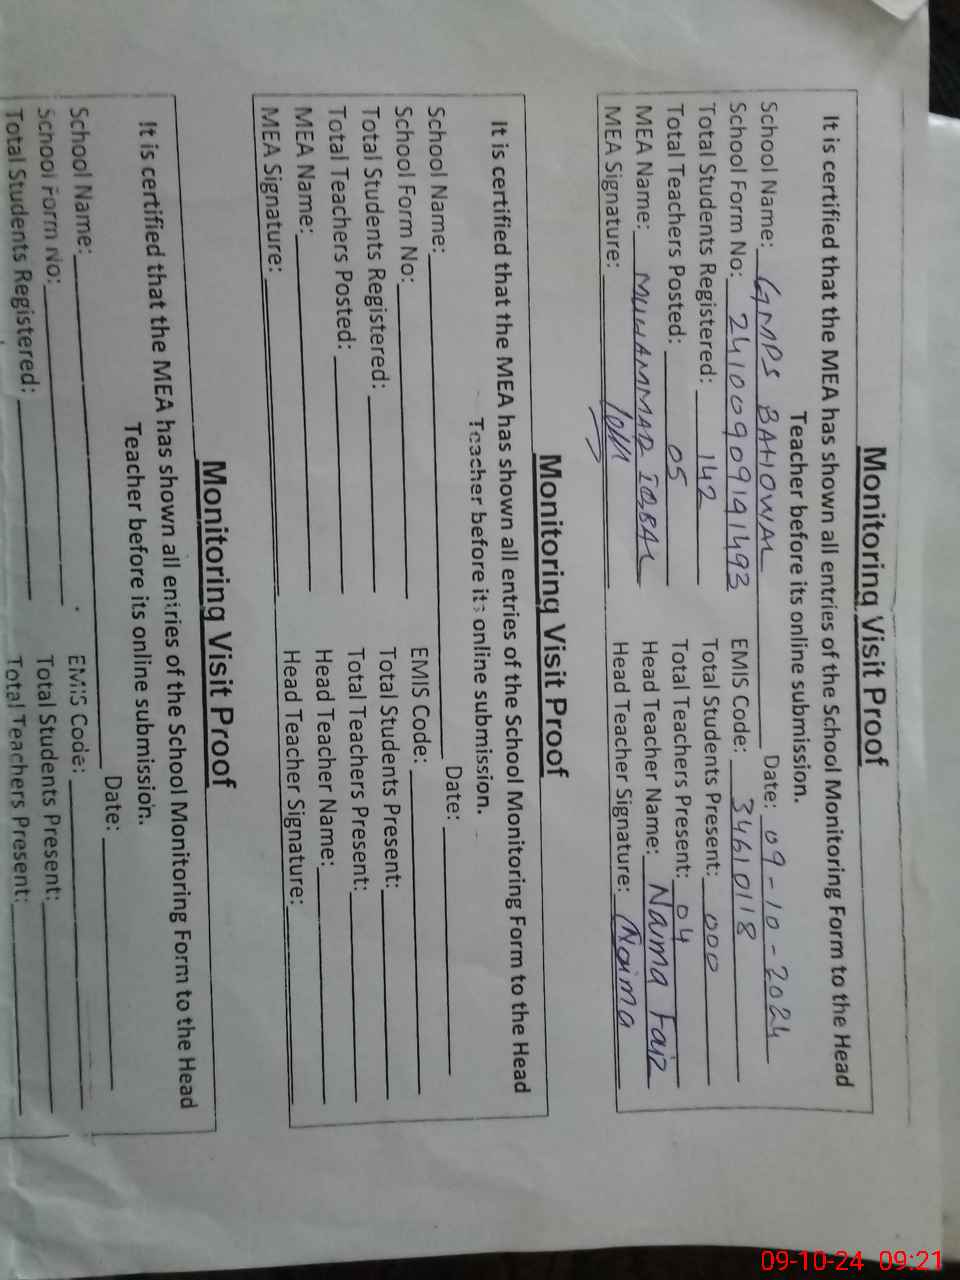 Monitoring Visit Proof
It is certified that the MEA has shown all entries of the School Monitoring Form to the Head
Teacher before its online submission.
School Name: GMPS BAHOWAL Date: 09-10-2024
School Form No: 24100909191493 EMIS Code: 34610118
Total Students Registered: 142 Total Students Present: 000
Total Teachers Posted: 05 Total Teachers Present: 04
MEA Name: MUHAMMAD IQBAL Head Teacher Name: Naima Faiz
MEA Signature: Head Teacher Signature: Naima
Monitoring Visit Proof
It is certified that the MEA has shown all entries of the School Monitoring Form to the Head
Teacher before its online submission.
School Name: Date:
School Form No: EMIS Code:
Total Students Registered: Total Students Present:
Total Teachers Posted: Total Teachers Present:
MEA Name: Head Teacher Name:
MEA Signature: Head Teacher Signature:
Monitoring Visit Proof
It is certified that the MEA has shown all entries of the School Monitoring Form to the Head
Teacher before its online submission.
School Name: Date:
School Form No: EMIS Code:
Total Students Registered: Total Students Present:
Total Teachers Present:
09-10-24 09:21